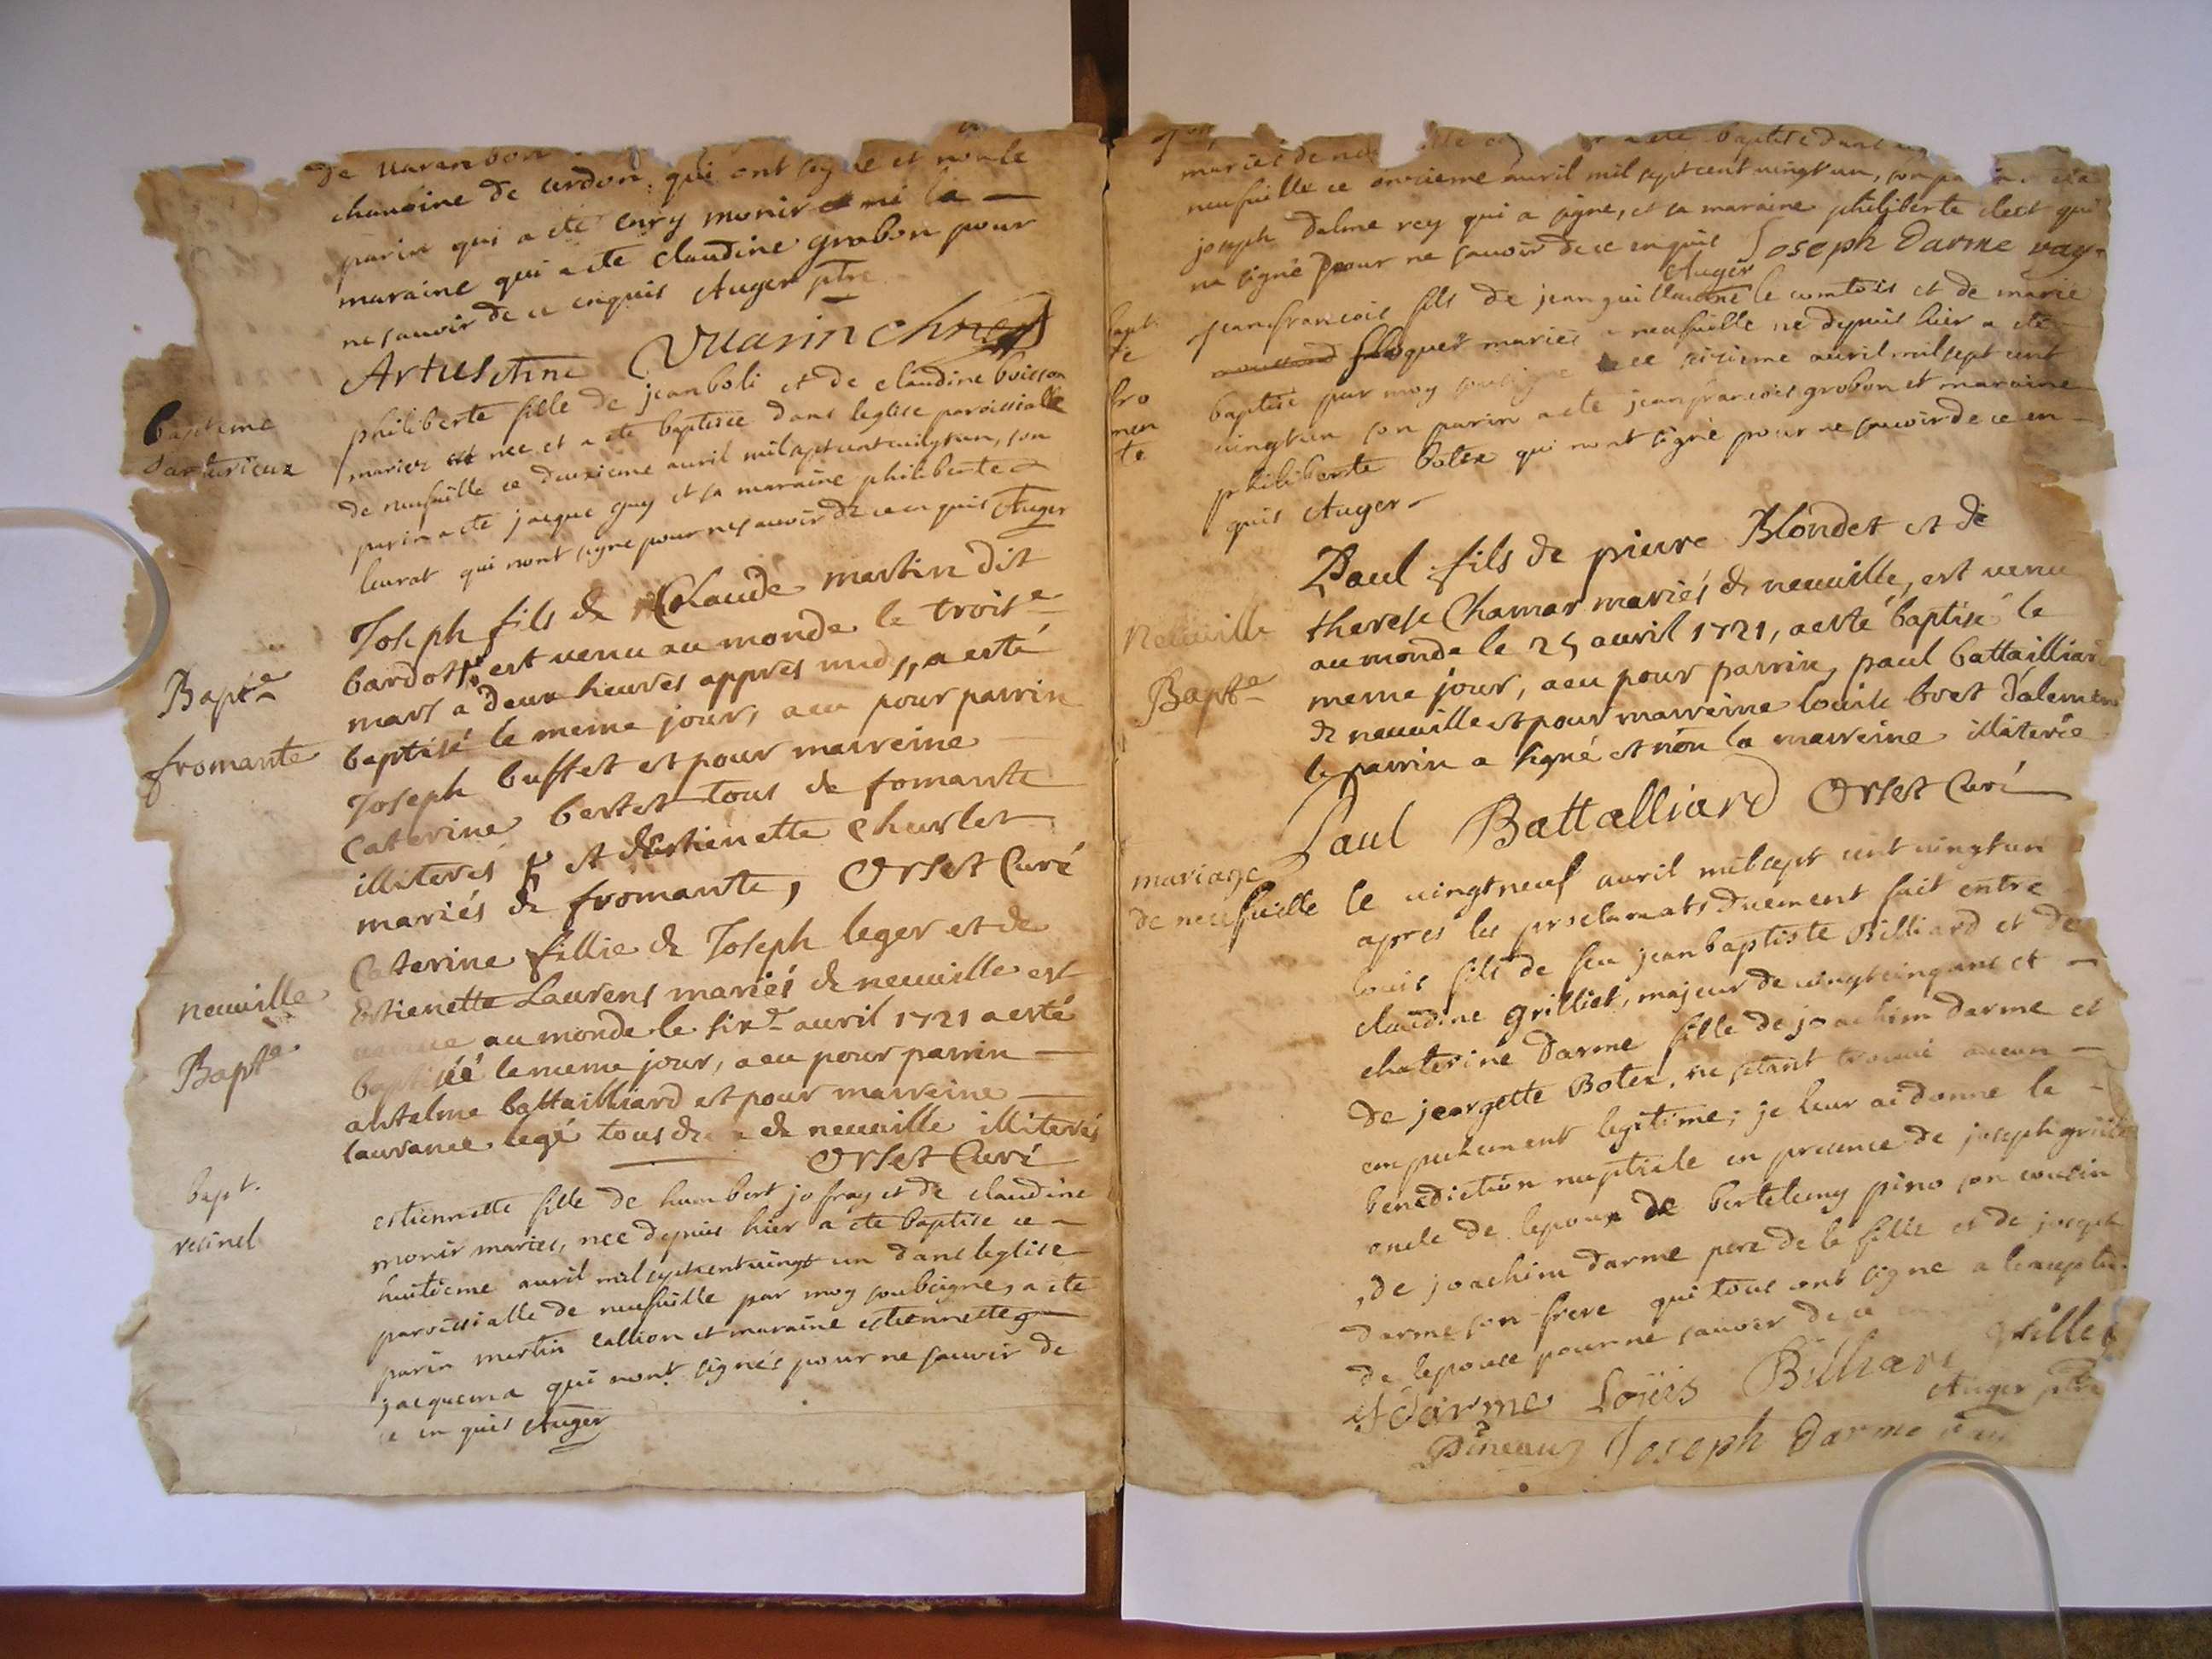 de Varanbon
chanoine de cerdon, qui ont signe et non le
parin qui a ete enry monir ni la
maraine qui a ete claudine grobon pour
ne sauoir de ce enquis Auger ptre
Artus Aine Vuarin chne
bapteme
philiberte fille de jean boli et de claudine buisson
maries est nee et a ete baptisee dans leglise paroissialle
de neufuille ce deuxieme auril mil sept cent uingt un, son
parin a ete jacque guy et sa maraine philiberte
leurat qui nont signe pour ne sauoir de ce enquis Auger
Bapte
fromante
Joseph fils de Claude martin dit
bardoss est uenu au monde le troise
mars a deux heures appres midy, a esté
baptisé le meme jour, a eu pour parrin
Joseph buffet et pour marreine
Caterine bertet tous de fomante
illiterés et destienette Charlet
mariés de fromante, Orset Curé
neuuille
Bapte
Caterine fillie de Joseph leger et de
Estienette Laurens mariés de neuuille est
uenue au monde le sixe auril 1721 a esté
baptiséé le meme jour, a eu pour parrin
antelme battailliard et pour marreine
laurance legé tous de neuuille illiterés
Orset Curé
bapt.
estiennette fille de humbert jofray et de claudine
monir maries, nee depuis hier a ete baptise ce
huitieme auril mil sept cent uingt un dans leglise
paroissialle de neufuille par moy soubsigne, a ete
parin martin callion et maraine estiennette
jacquema qui nont signés pour ne sauoir de
ce en quis Auger
maries de a ete baptise dans
neufuille ce onzieme auril mil sept cent uingt un, son
joseph dalme rey qui a signe, et sa maraine philiberte clect qui
na signé pour ne sauoir de ce enquis Joseph Darme ray
Auger
bapt
te
fro
men
te
jean francois fils de jean guillaume le comtois et de marie
floquet maries a neufuille ne depuis hier a ete
baptise par moy soussigne ce sizieme auril mil sept cent
uingt un son parin a ete jean francois grobon et maraine
philiberte botex qui nont signé pour ne sauoir de ce en
quis Auger
Neuuille
Bapte
Paul fils de pierre Blondet et de
therese Chamar mariés de neuuille, est uenu
au monde le 25 auril 1721, a esté baptisé le
meme jour, a eu pour parrin, paul battailliard
de neuuille et pour marreine louise bret
le parrin a signé et non la marreine illiterée
Paul Battalliard Orset Curé
mariage
de neufuille
le uingt neuf auril mil sept cent uingt un
apres les proclamats duement fait entre
louis fils de feu jean baptiste Billiard et de
claudine grilliet, majeur de uingt cinq ans et
chaterine darme fille de joachim darme et
de jeorgette Botex, ne setant trouué aucun
empechement legitime, je leur ai donne la
benediction nuptiale en presence de joseph
oncle de lepoux de bertelemy pino son cousin
, de joachim darme pere de la fille et de joseph
darme son frere qui tous ont signe a
de lepouse pour ne sauoir de ce
darme Loüis Billiard grillet
Auger ptre
Pineaud Joseph Darme